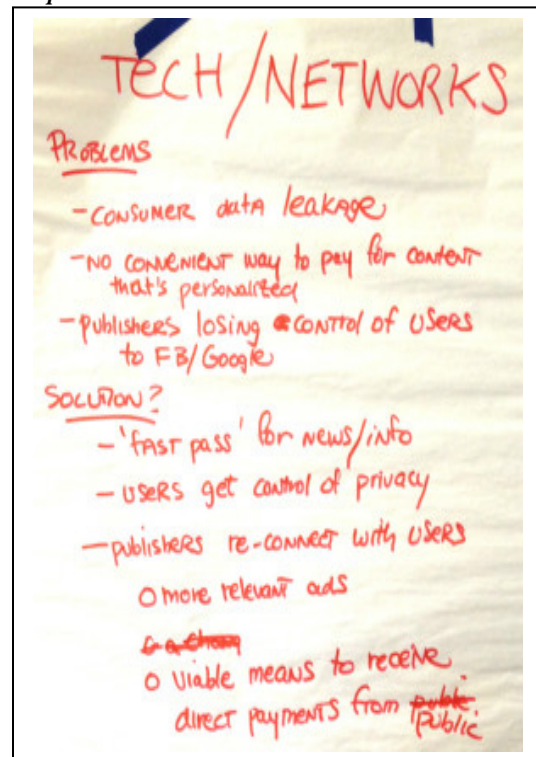 TECH/NETWORKS
PROBLEMS
- CONSUMER data leakage
- NO CONVENIENT way to pay for content
that's personalized
- publishers losing control of users
to FB/Google
SOLUTION?
- 'fast pass' for news/info
- users get control of privacy
- publishers re-connect with users
o more relevant ads
o viable means to receive
direct payments from public